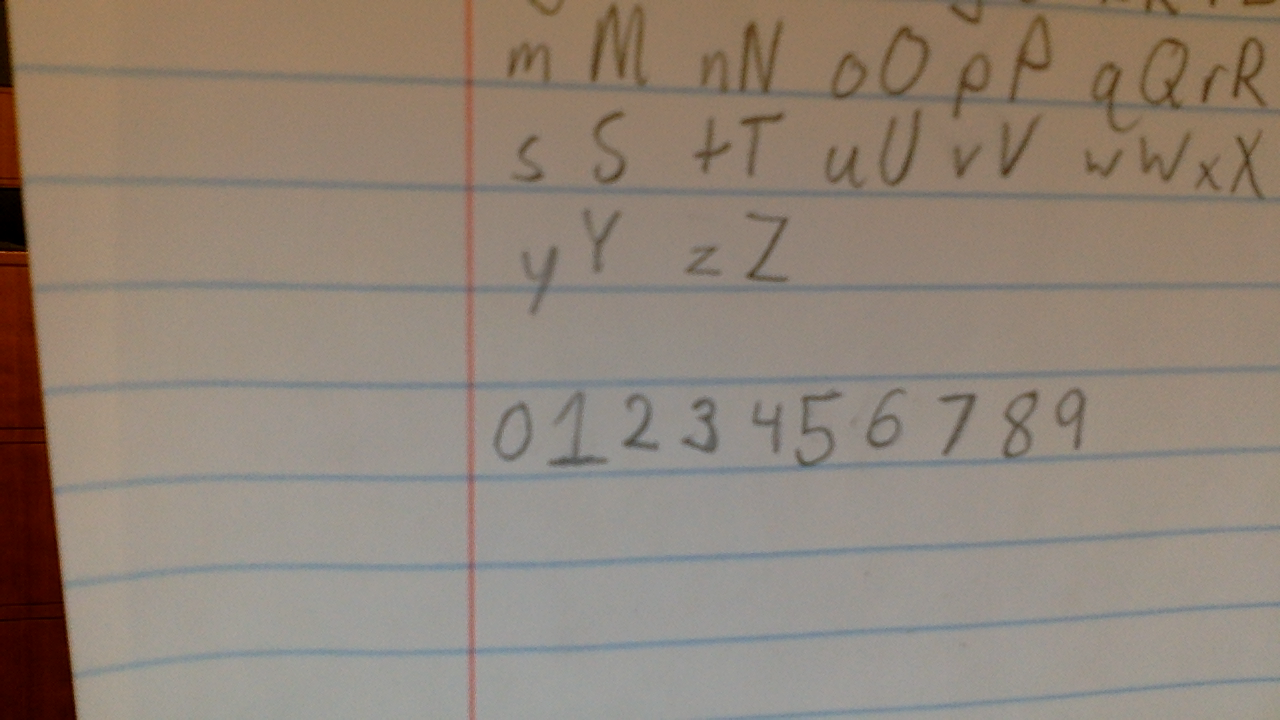 m M nN oO pP qQ rR
s S tT uU vV wW xX
yY zZ
0 1 2 3 4 5 6 7 8 9